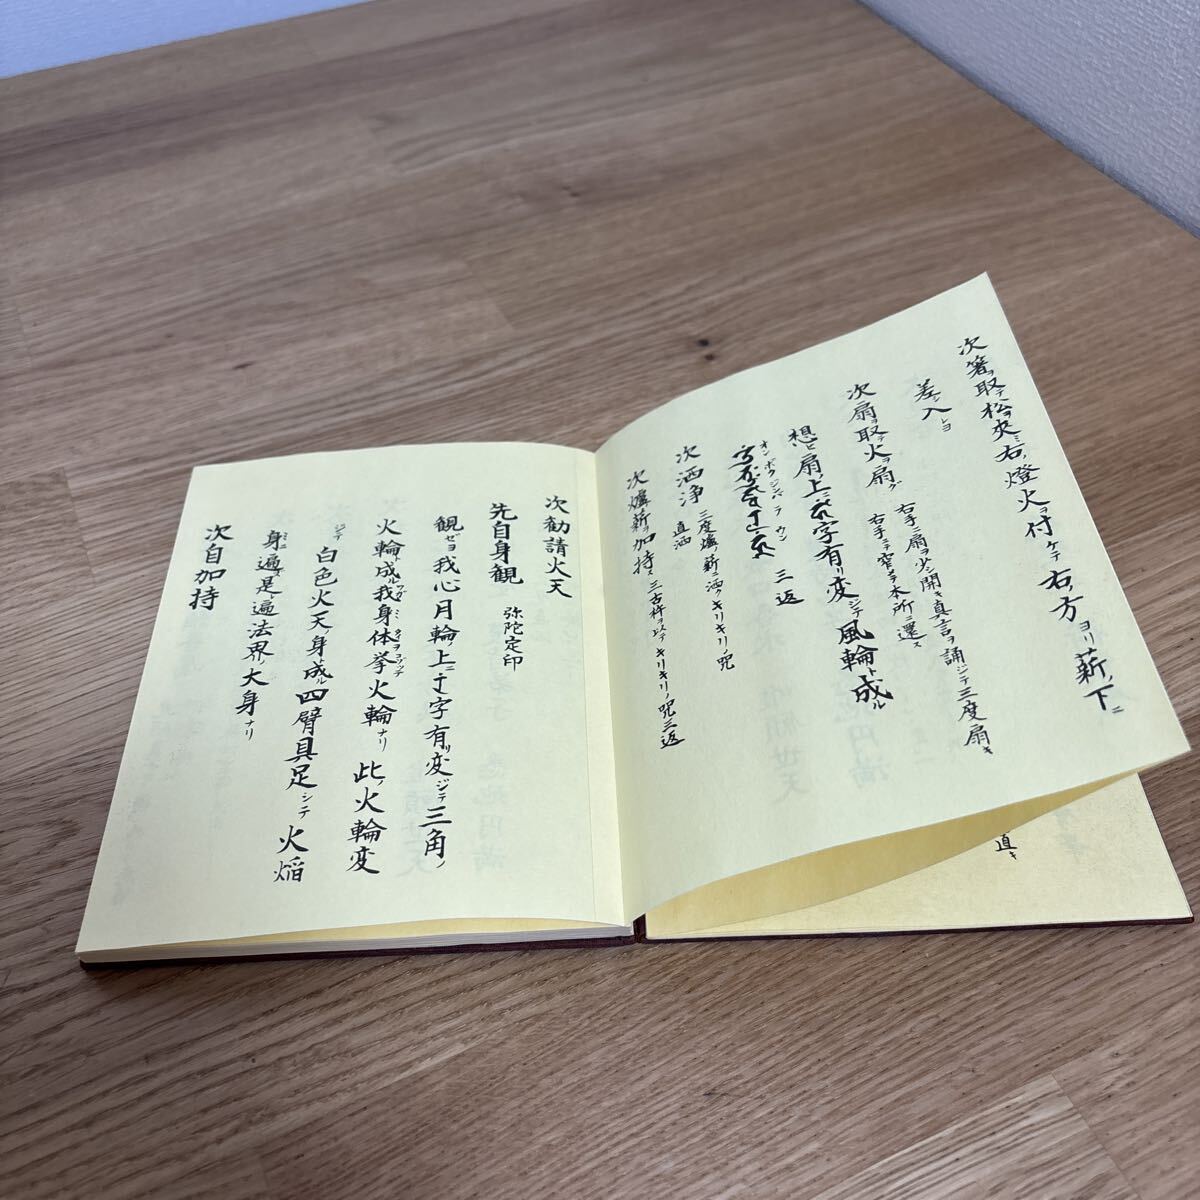 次箸ヲ取テ松ヲ夾ミ右ノ燈火ヲ付ケテ右ノ方ヨリ薪ノ下ニ
差シ入レヨ
次扇ヲ取テ火ヲ扇グ
右手ニ扇ヲ少シ開キ真言ヲ誦ジテ三度扇キ
右手ニテ窄メテ本所ニ還ス
想ヒ扇ノ上ニ字有リ変ジテ風輪ト成ル
オンボクジンバラウン
三返
次洒浄
三度爐ノ薪ニ洒クキリキリノ呪
直洒
次爐薪ヲ加持ス三古杵ヲ以テキリキリノ呪三返
次勧請火天
先自身観 弥陀定印
観ゼヨ我心月輪ノ上ニ字有リ変ジテ三角ノ
火輪ト成ル我身体挙火輪ナリ此ノ火輪変
ジテ白色火天ノ身ト成ル四臂具足シテ火焔
身ニ遍ス是遍法界ノ大身ナリ
次自加持
直キ